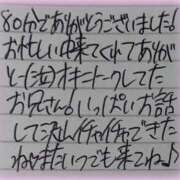 80分でありがとうございました!
お忙しい中来てくれてありが
と〜(女)オキニトークしてた
お兄さん!いっぱいお話
して沢山イチャイチャできた
ね♡またいつでも来てね♪